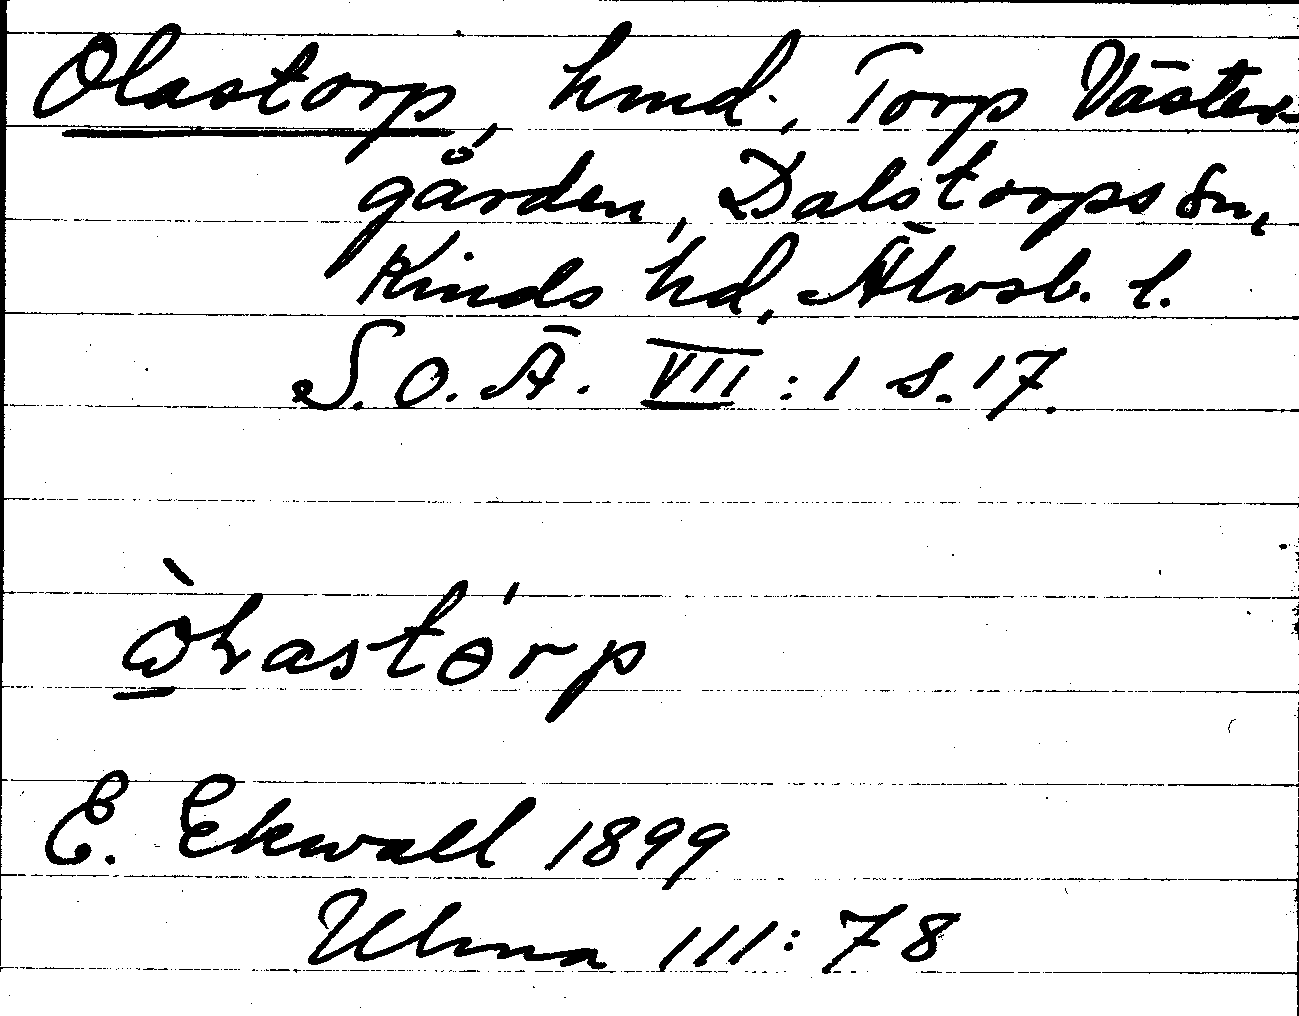 Olastorp, hmd., Torp Väster-
gården, Dalstorps sn,
Kinds hd, Älvsb. l.
S.O.Ä. VII : 1 s. 17.
E. Ekwall 1899
Ulma 111:78